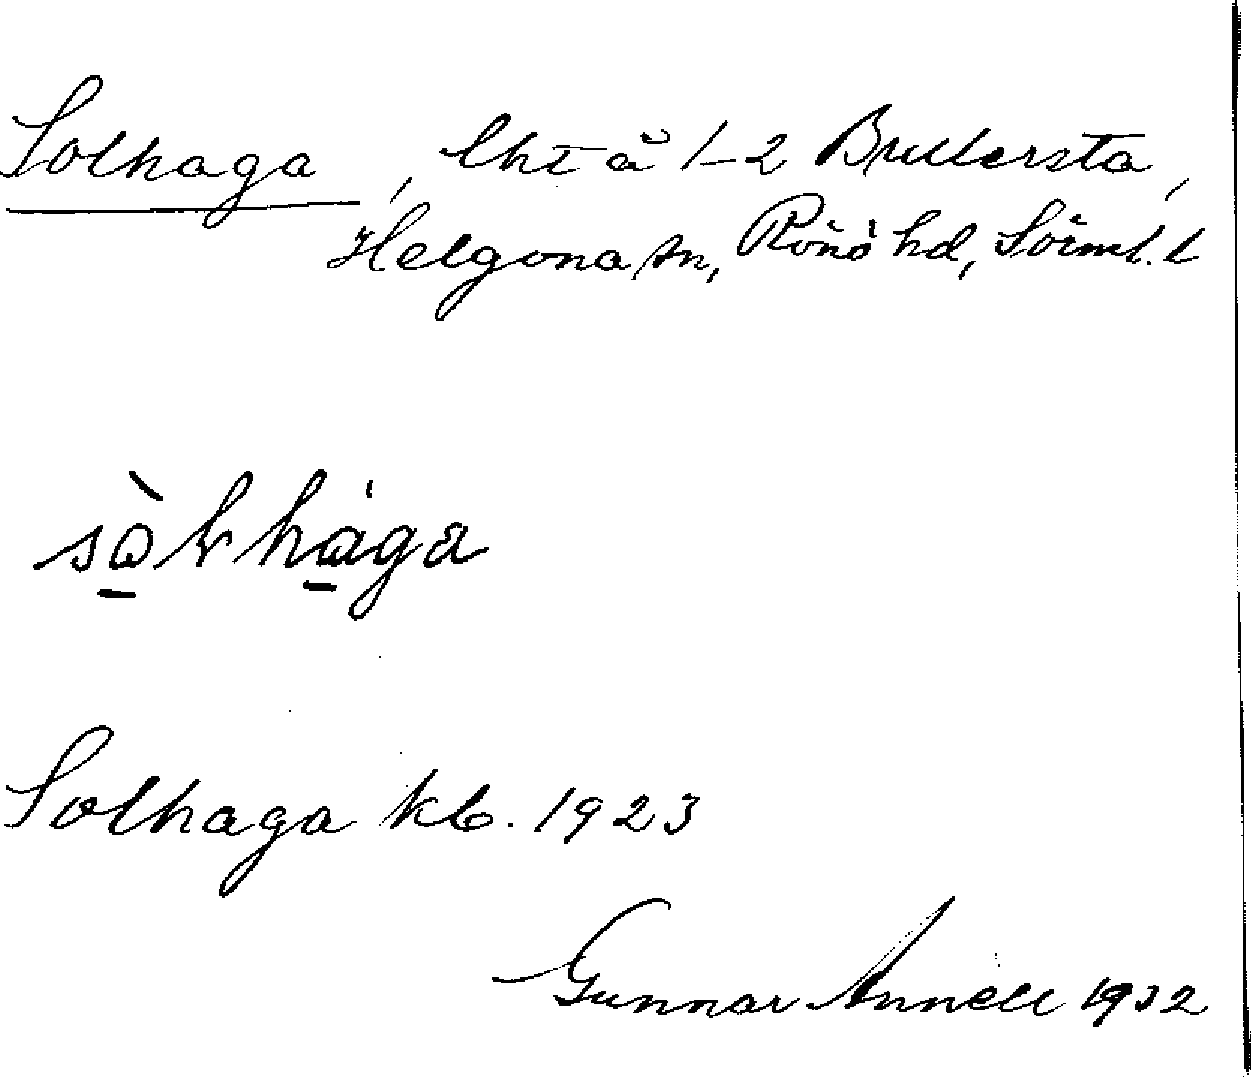 Solhaga, lht å 1-2 Bullersta,
Helgona sn, Rönö hd, Söiml. l
Solhaga kb. 1923
Gunnar Annell 1932